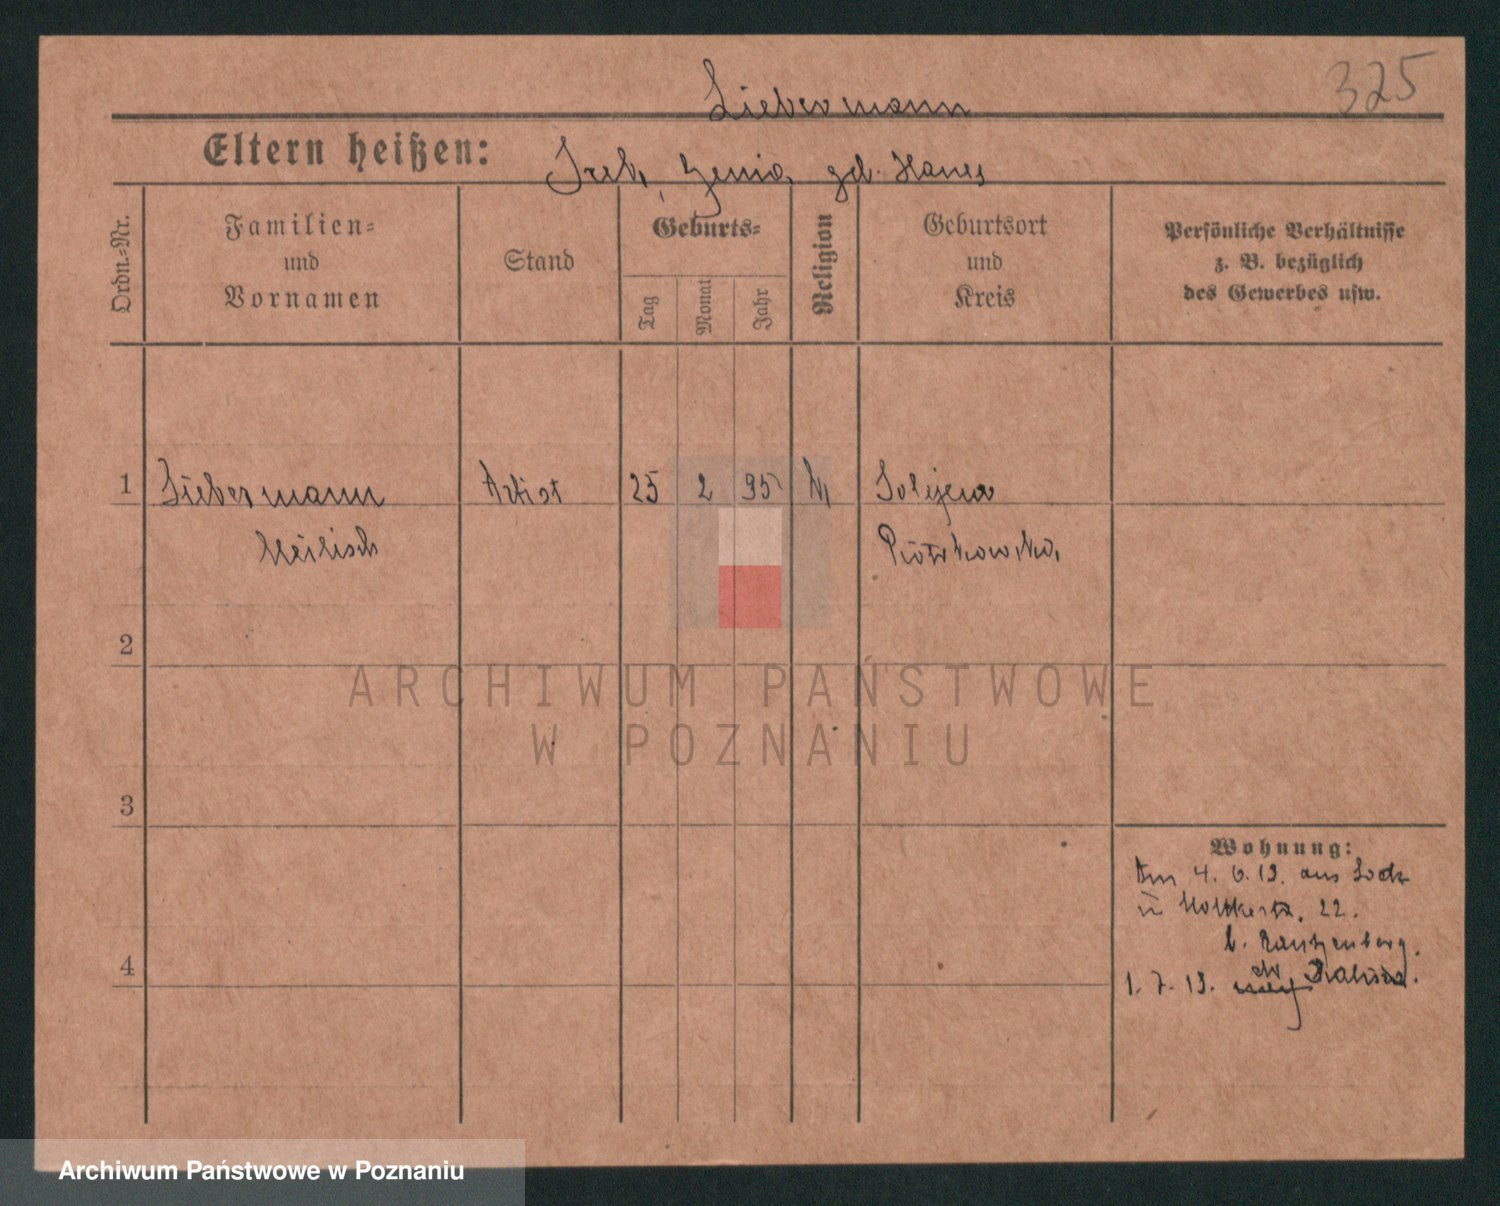 325
Liebermann
Eltern heißen:
geb. Hanes
Ordn.-Nr.
Familien-
und
Vornamen
Stand
Geburts-
Tag
Monat
Jahr
Religion
Geburtsort
und
Kreis
Persönliche Verhältnisse
z. B. bezüglich
des Gewerbes usw.
1
Liebermann
Artist
25
2
95
2
3
4
Wohnung:
Am 4. 6. 13. aus Lodz
in Moltkestr. 22.
b. Rantzenberg.
1. 7. 13.
ARCHIWUM PAŃSTWOWE
W POZNANIU
Archiwum Państwowe w Poznaniu